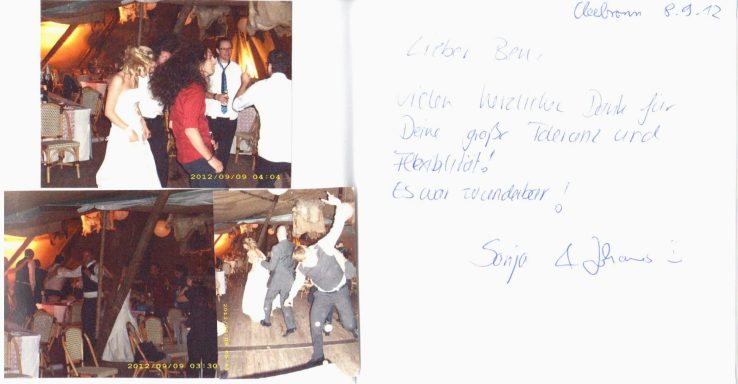 2012/09/09 04:04
2012/09/09 03:30
Cleebronn 8.9.12
Lieber Ben,
vielen herzlichen Dank für
Deine große Toleranz und
Flexibilität!
Es war wunderbar!
Sonja & Johannes